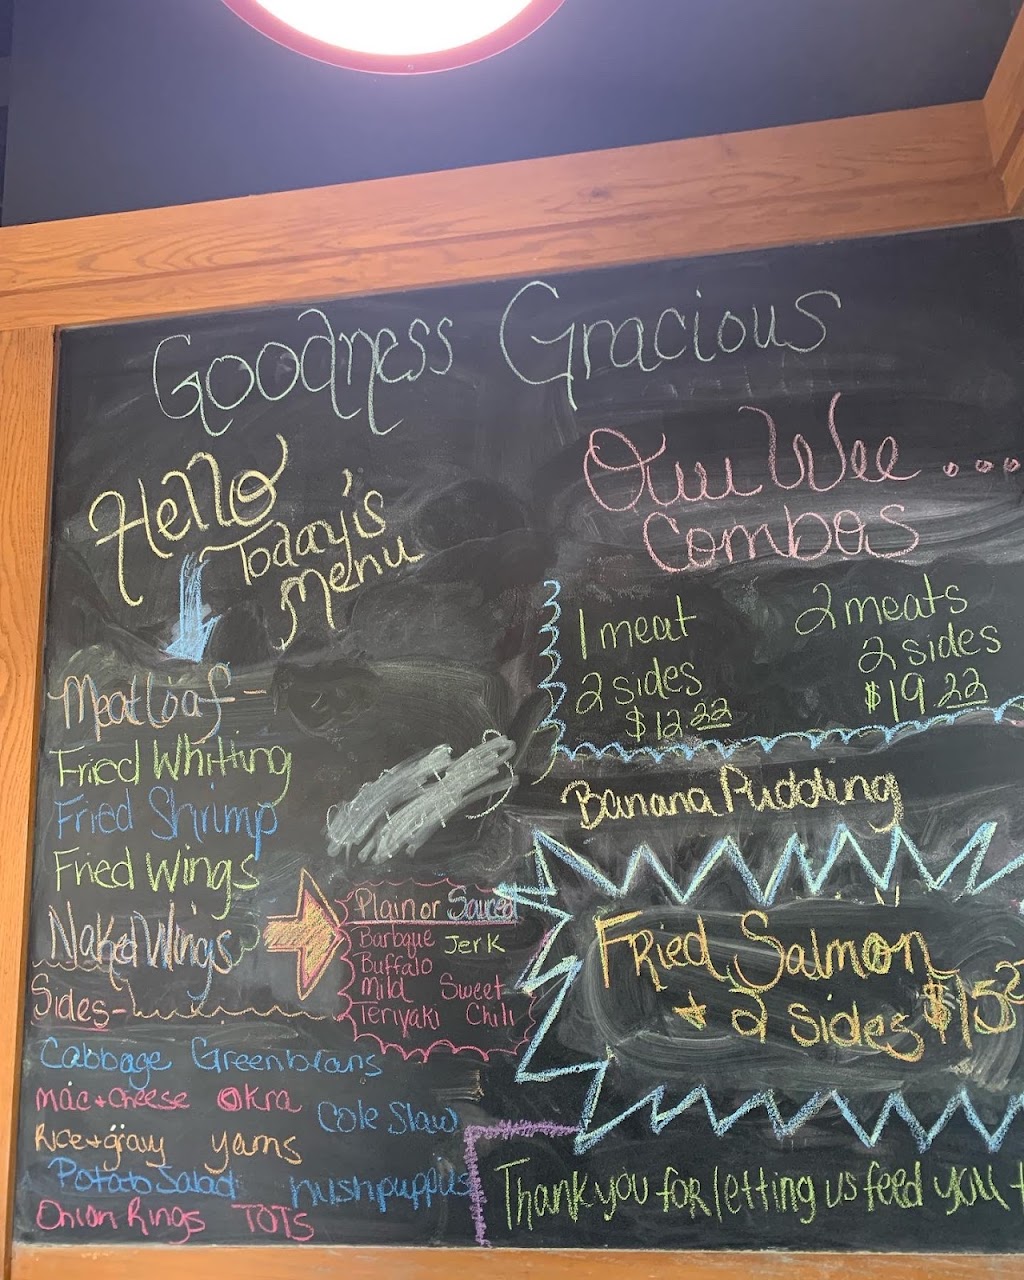 Goodness Gracious
Hello
Today's
Menu
Meatloaf-
Fried Whitting
Fried Shrimp
Fried Wings
Naked Wings
Plain or Sauced
Barbque Jerk
Buffalo
Mild Sweet
Teriyaki Chili
Sides-
Cabbage Greenbeans
Mac + Cheese Okra
Cole Slaw
Rice + gravy yams
Potato Salad hushpuppies
Onion Rings TOTS
Ouu Wee ....
Combos
1 meat
2 sides
$12.22
2 meats
2 sides
$19.22
Banana Pudding
Fried Salmon
+ 2 sides $15
Thank you for letting us feed you